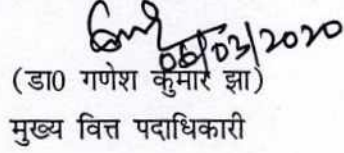 06/03/2020
(डा0 गणेश कुमार झा)
मुख्य वित्त पदाधिकारी